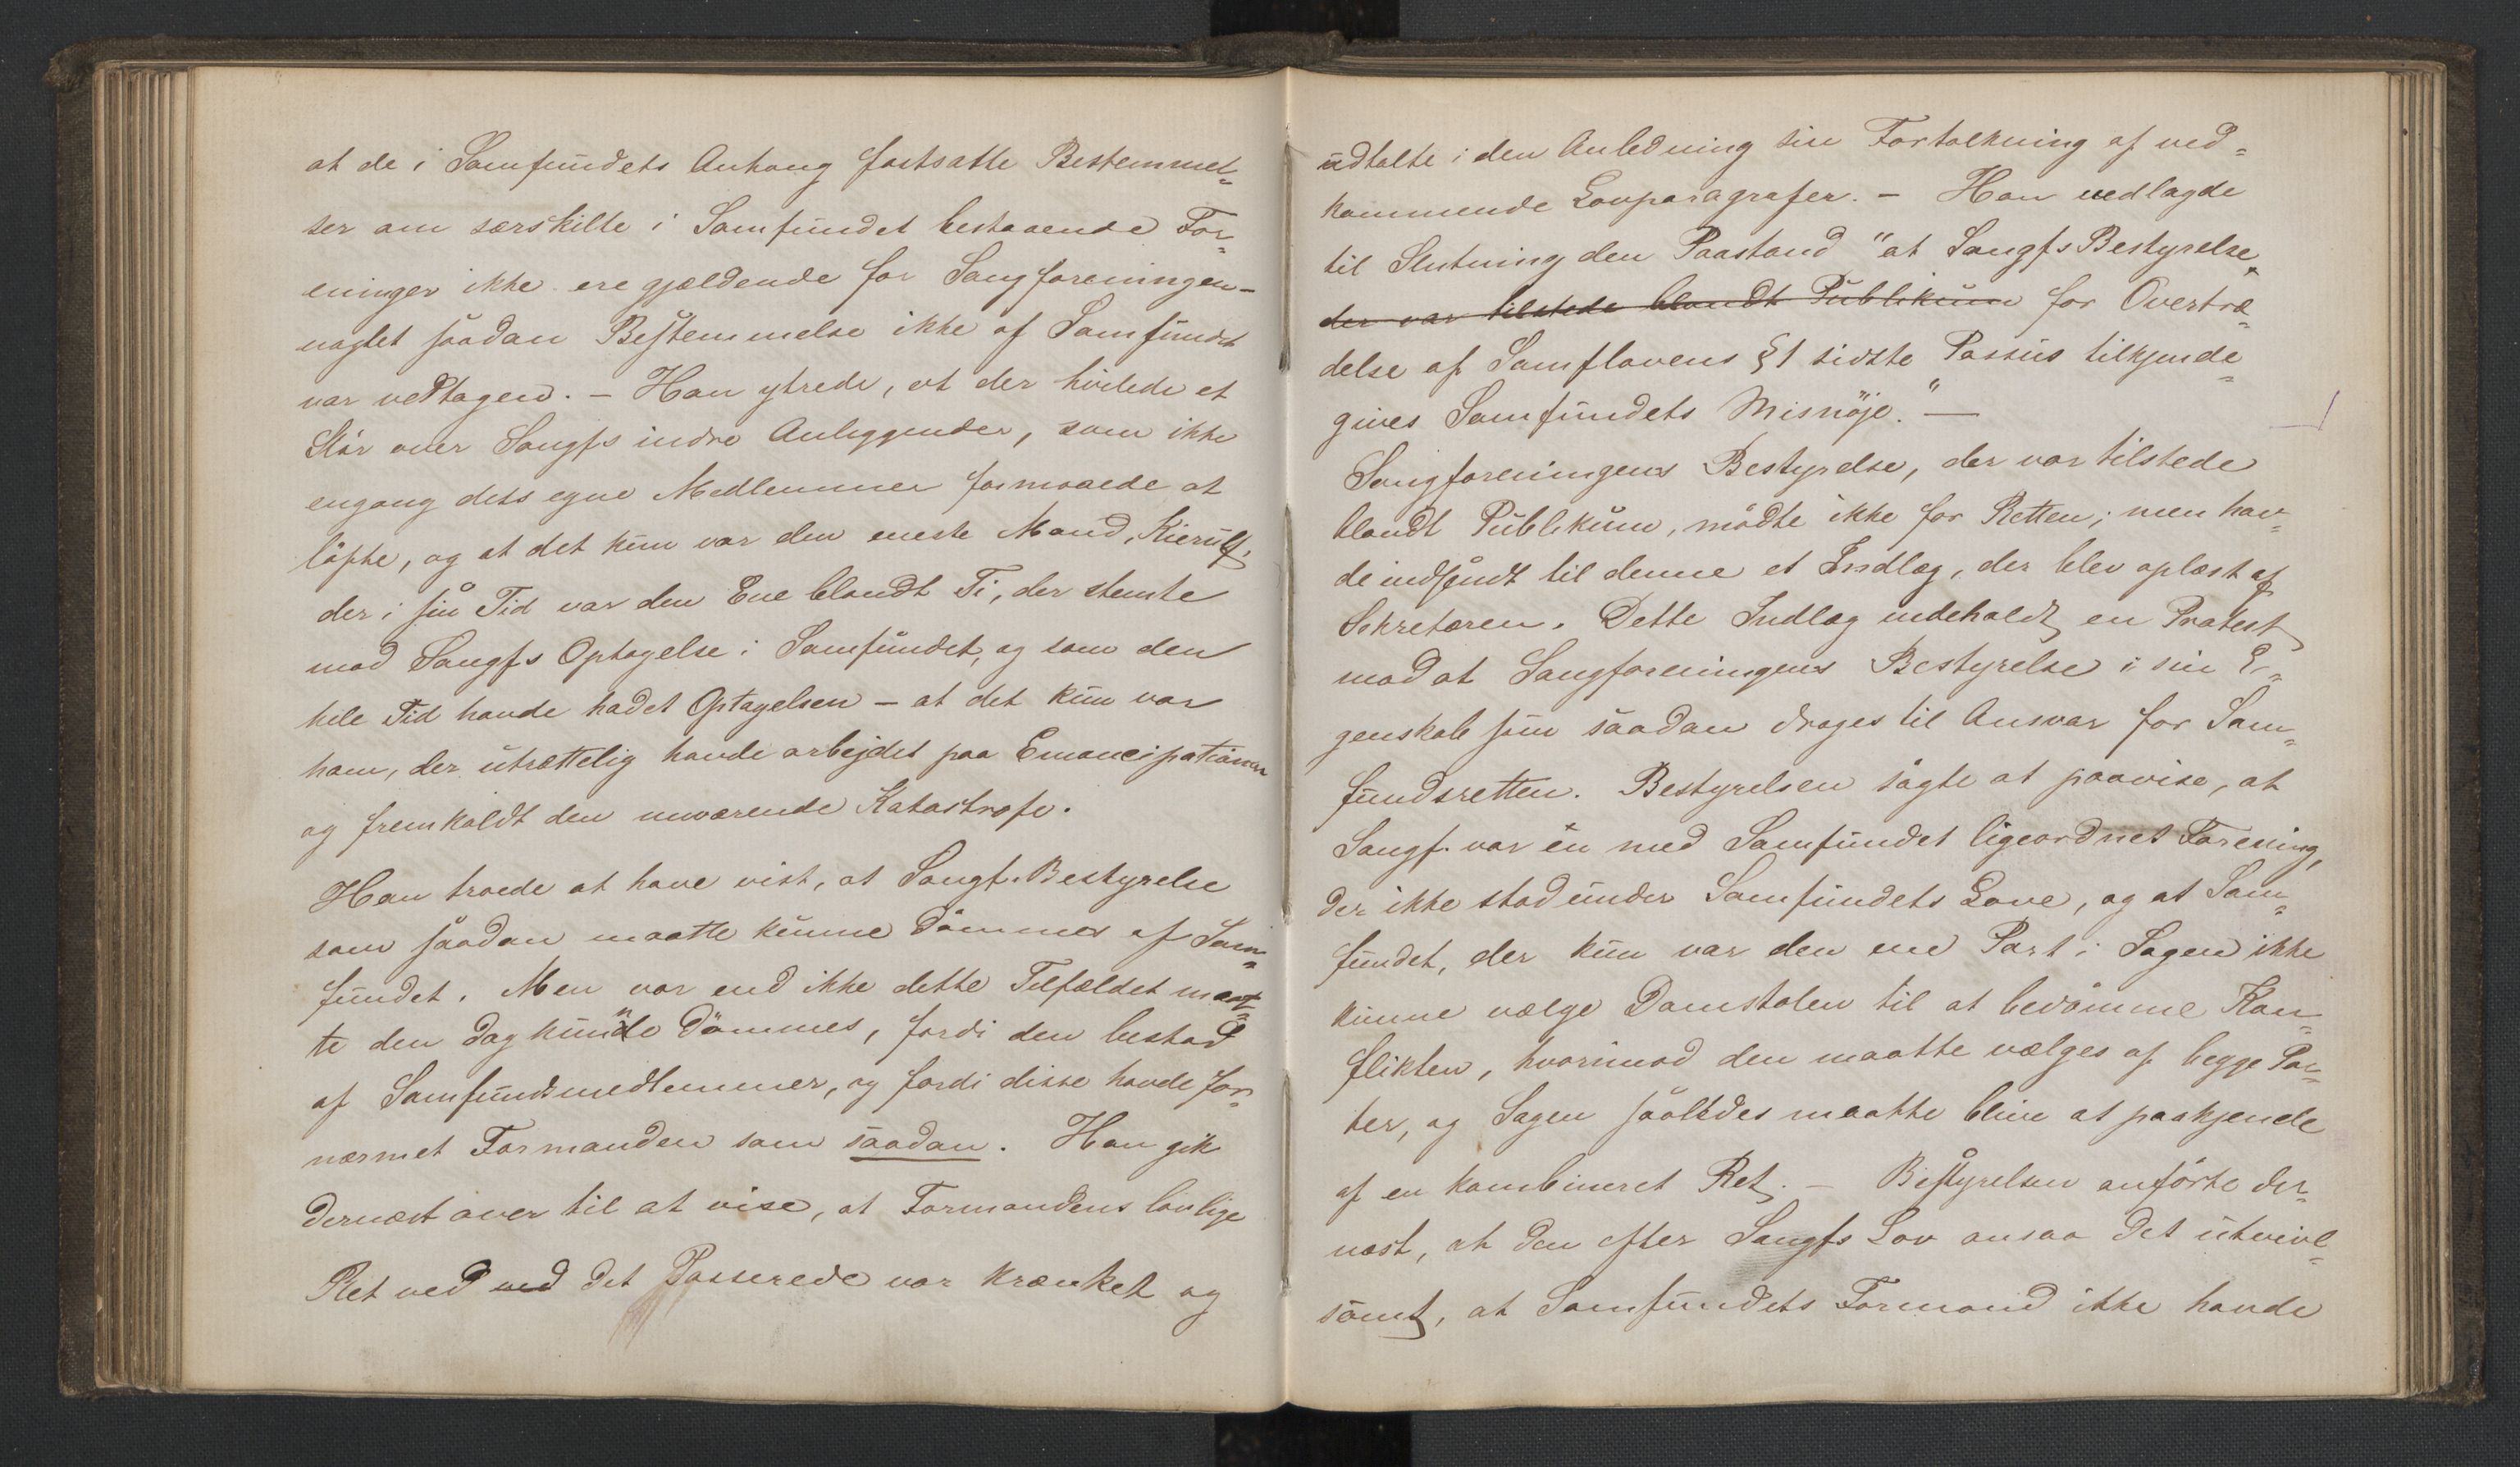 at de i Samfundets Anhang fastsatte Bestemmel-
ser om særskilte i Samfundet bestaaende For-
eninger ikke ere gjældende for Sangforeningen –
uagtet saadan Bestemmelse ikke af Samfundet
var vedtagen. – Han ytrede, at der hvilede et
Slør over Sangfs indre Anliggender, som ikke
engang dets egne Medlemmer formaaede at
løfte, og at det kun var den eneste Mand, Kierulf,
der i sin Tid var den Ene blandt Ti, der stemte
mod Sangfs Optagelse i Samfundet, og som den
hele Tid havde hadet Optagelsen – at det kun var
ham, der utrættelig havde arbejdet paa Emancipationen
og fremkaldt den nuværende Katastrofe.
Han troede at have vist, at Sangf. Bestyrelse
som saadan maatte kunne dømmes af Sam-
fundet. Men var end ikke dette Tilfældet maat-
te den dog kunne dømmes, fordi den bestod
af Samfundsmedlemmer, og fordi disse havde for-
nærmet Formanden som saadan. Han gik
dernæst over til at vise, at Formandens lovlige
Ret ved ved det Passerede var krænket og
udtalte i den Anledning sin Fortolkning af ved-
kommende Lovparagrafer. – Han nedlagde
til Slutning den Paastand "at Sangfs Bestyrelse
der var tilstede blandt Publikum for Overtræ-
delse af Samflovens §1 sidste Passus tilkjende-
gives Samfundets Misnøje." –
Sangforeningens Bestyrelse, der var tilstede
blandt Publikum, mødte ikke for Retten; men hav-
de indsendt til denne et Indlæg, der blev oplæst af
Sekretæren. Dette Indlæg indeholdt en Protest
mod at Sangforeningens Bestyrelse i sin E-
genskab som saadan drages til Ansvar for Sam-
fundsretten. Bestyrelsen søgte at paavise, at
Sangf. var en med Samfundet ligeordnet Forening,
der ikke stod under Samfundets Love, og at Sam-
fundet, der kun var den ene Part i Sagen ikke
kunne vælge Domstolen til at bedømme Kon-
flikten, hvorimod den maatte vælges af begge Par-
ter, og Sagen saaledes maatte blive at paakjende
af en kombineret Ret. – Bestyrelsen anførte der-
næst, at den efter Sangfs Lov ansaa det utvivl-
somt, at Samfundets Formand ikke havde